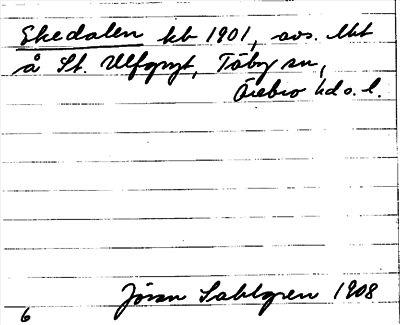 Ekedalen kb 1901, avs. lht
å St. Ulfgryt, Täby sn,
Örebro hd o. l.
Jöran Sahlgren 1908
6